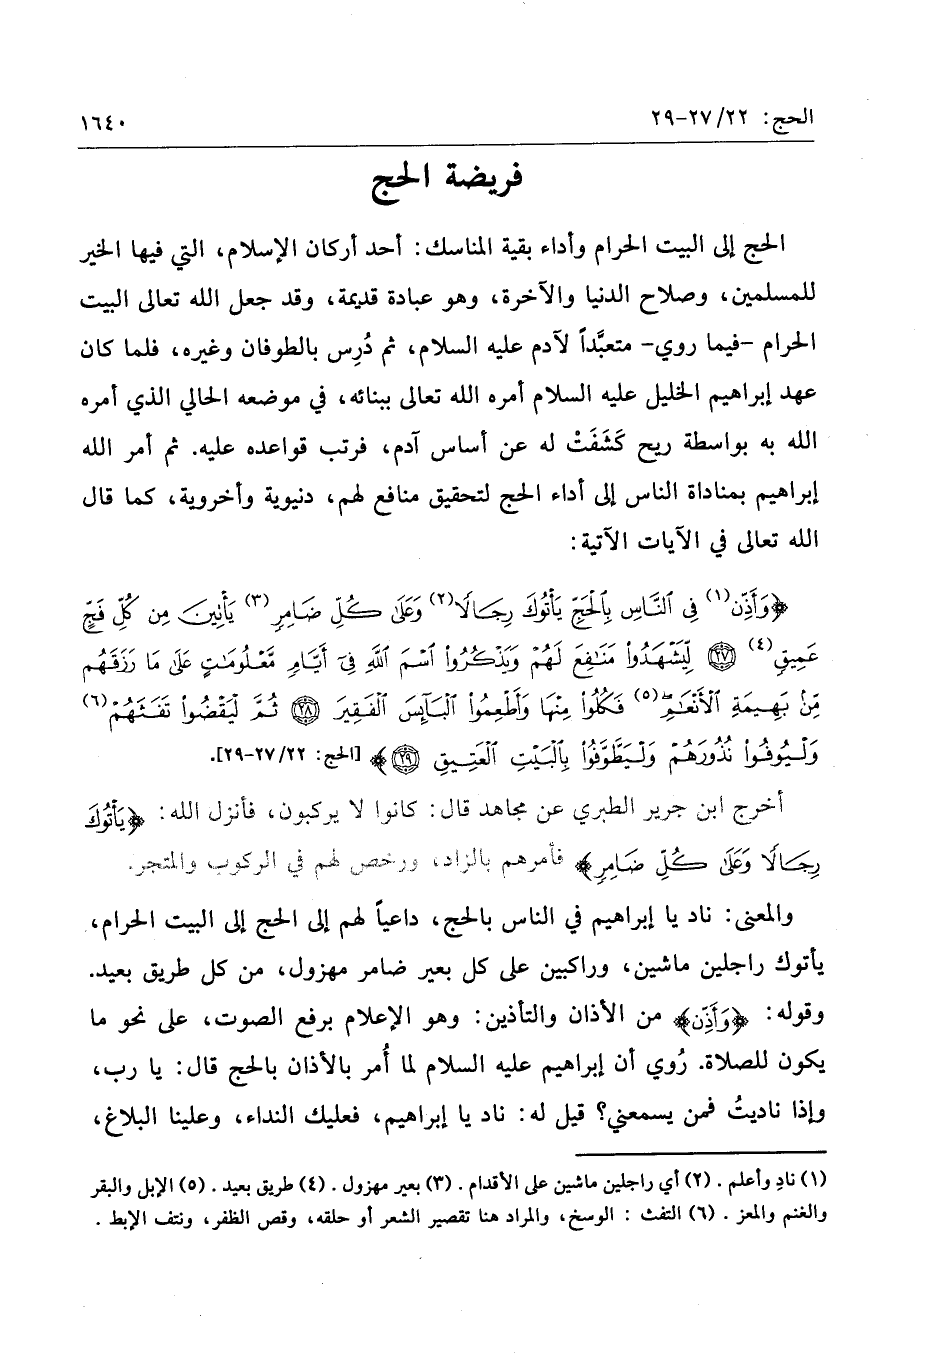 الحج: ٢٢/ ٢٧-٢٩ ١٦٤٠
فريضة الحج
الحج إلى البيت الحرام وأداء بقية المناسك: أحد أركان الإسلام، التي فيها الخير
للمسلمين، وصلاح الدنيا والآخرة، وهو عبادة قديمة، وقد جعل الله تعالى البيت
الحرام -فيما روي- متعبَّداً لآدم عليه السلام، ثم دُرِس بالطوفان وغيره، فلما كان
عهد إبراهيم الخليل عليه السلام أمره الله تعالى ببنائه، في موضعه الحالي الذي أمره
الله به بواسطة ريح كَشَفَتْ له عن أساس آدم، فرتب قواعده عليه. ثم أمر الله
إبراهيم بمناداة الناس إلى أداء الحج لتحقيق منافع لهم، دنيوية وأخروية، كما قال
الله تعالى في الآيات الآتية:
﴿وَأَذِّن(١) فِي ٱلنَّاسِ بِٱلْحَجِّ يَأْتُوكَ رِجَالًا(٢) وَعَلَىٰ كُلِّ ضَامِرٍ(٣) يَأْتِينَ مِن كُلِّ فَجٍّ
عَمِيقٍ(٤) ﴿٢٧﴾ لِّيَشْهَدُوا۟ مَنَٰفِعَ لَهُمْ وَيَذْكُرُوا۟ ٱسْمَ ٱللَّهِ فِىٓ أَيَّامٍ مَّعْلُومَٰتٍ عَلَىٰ مَا رَزَقَهُم
مِّنۢ بَهِيمَةِ ٱلْأَنْعَٰمِۖ(٥) فَكُلُوا۟ مِنْهَا وَأَطْعِمُوا۟ ٱلْبَآئِسَ ٱلْفَقِيرَ ﴿٢٨﴾ ثُمَّ لْيَقْضُوا۟ تَفَثَهُمْ(٦)
وَلْيُوفُوا۟ نُذُورَهُمْ وَلْيَطَّوَّفُوا۟ بِٱلْبَيْتِ ٱلْعَتِيقِ ﴿٢٩﴾﴾ [الحج: ٢٢/ ٢٧-٢٩].
أخرج ابن جرير الطبري عن مجاهد قال: كانوا لا يركبون، فأنزل الله: ﴿يَأْتُوكَ
رِجَالًا وَعَلَىٰ كُلِّ ضَامِرٍ﴾ فأمرهم بالزاد، ورخص لهم في الركوب والمتجر.
والمعنى: ناد يا إبراهيم في الناس بالحج، داعياً لهم إلى الحج إلى البيت الحرام،
يأتوك راجلين ماشين، وراكبين على كل بعير ضامر مهزول، من كل طريق بعيد.
وقوله: ﴿وَأَذِّن﴾ من الأذان والتأذين: وهو الإعلام برفع الصوت، على نحو ما
يكون للصلاة. رُوي أن إبراهيم عليه السلام لما أُمر بالأذان بالحج قال: يا رب،
وإذا ناديتُ فمن يسمعني؟ قيل له: ناد يا إبراهيم، فعليك النداء، وعلينا البلاغ،
(١) نادِ وأعلم . (٢) أي راجلين ماشين على الأقدام . (٣) بعير مهزول . (٤) طريق بعيد . (٥) الإبل والبقر
والغنم والمعز . (٦) التفث : الوسخ، والمراد هنا تقصير الشعر أو حلقه، وقص الظفر، ونتف الإبط .